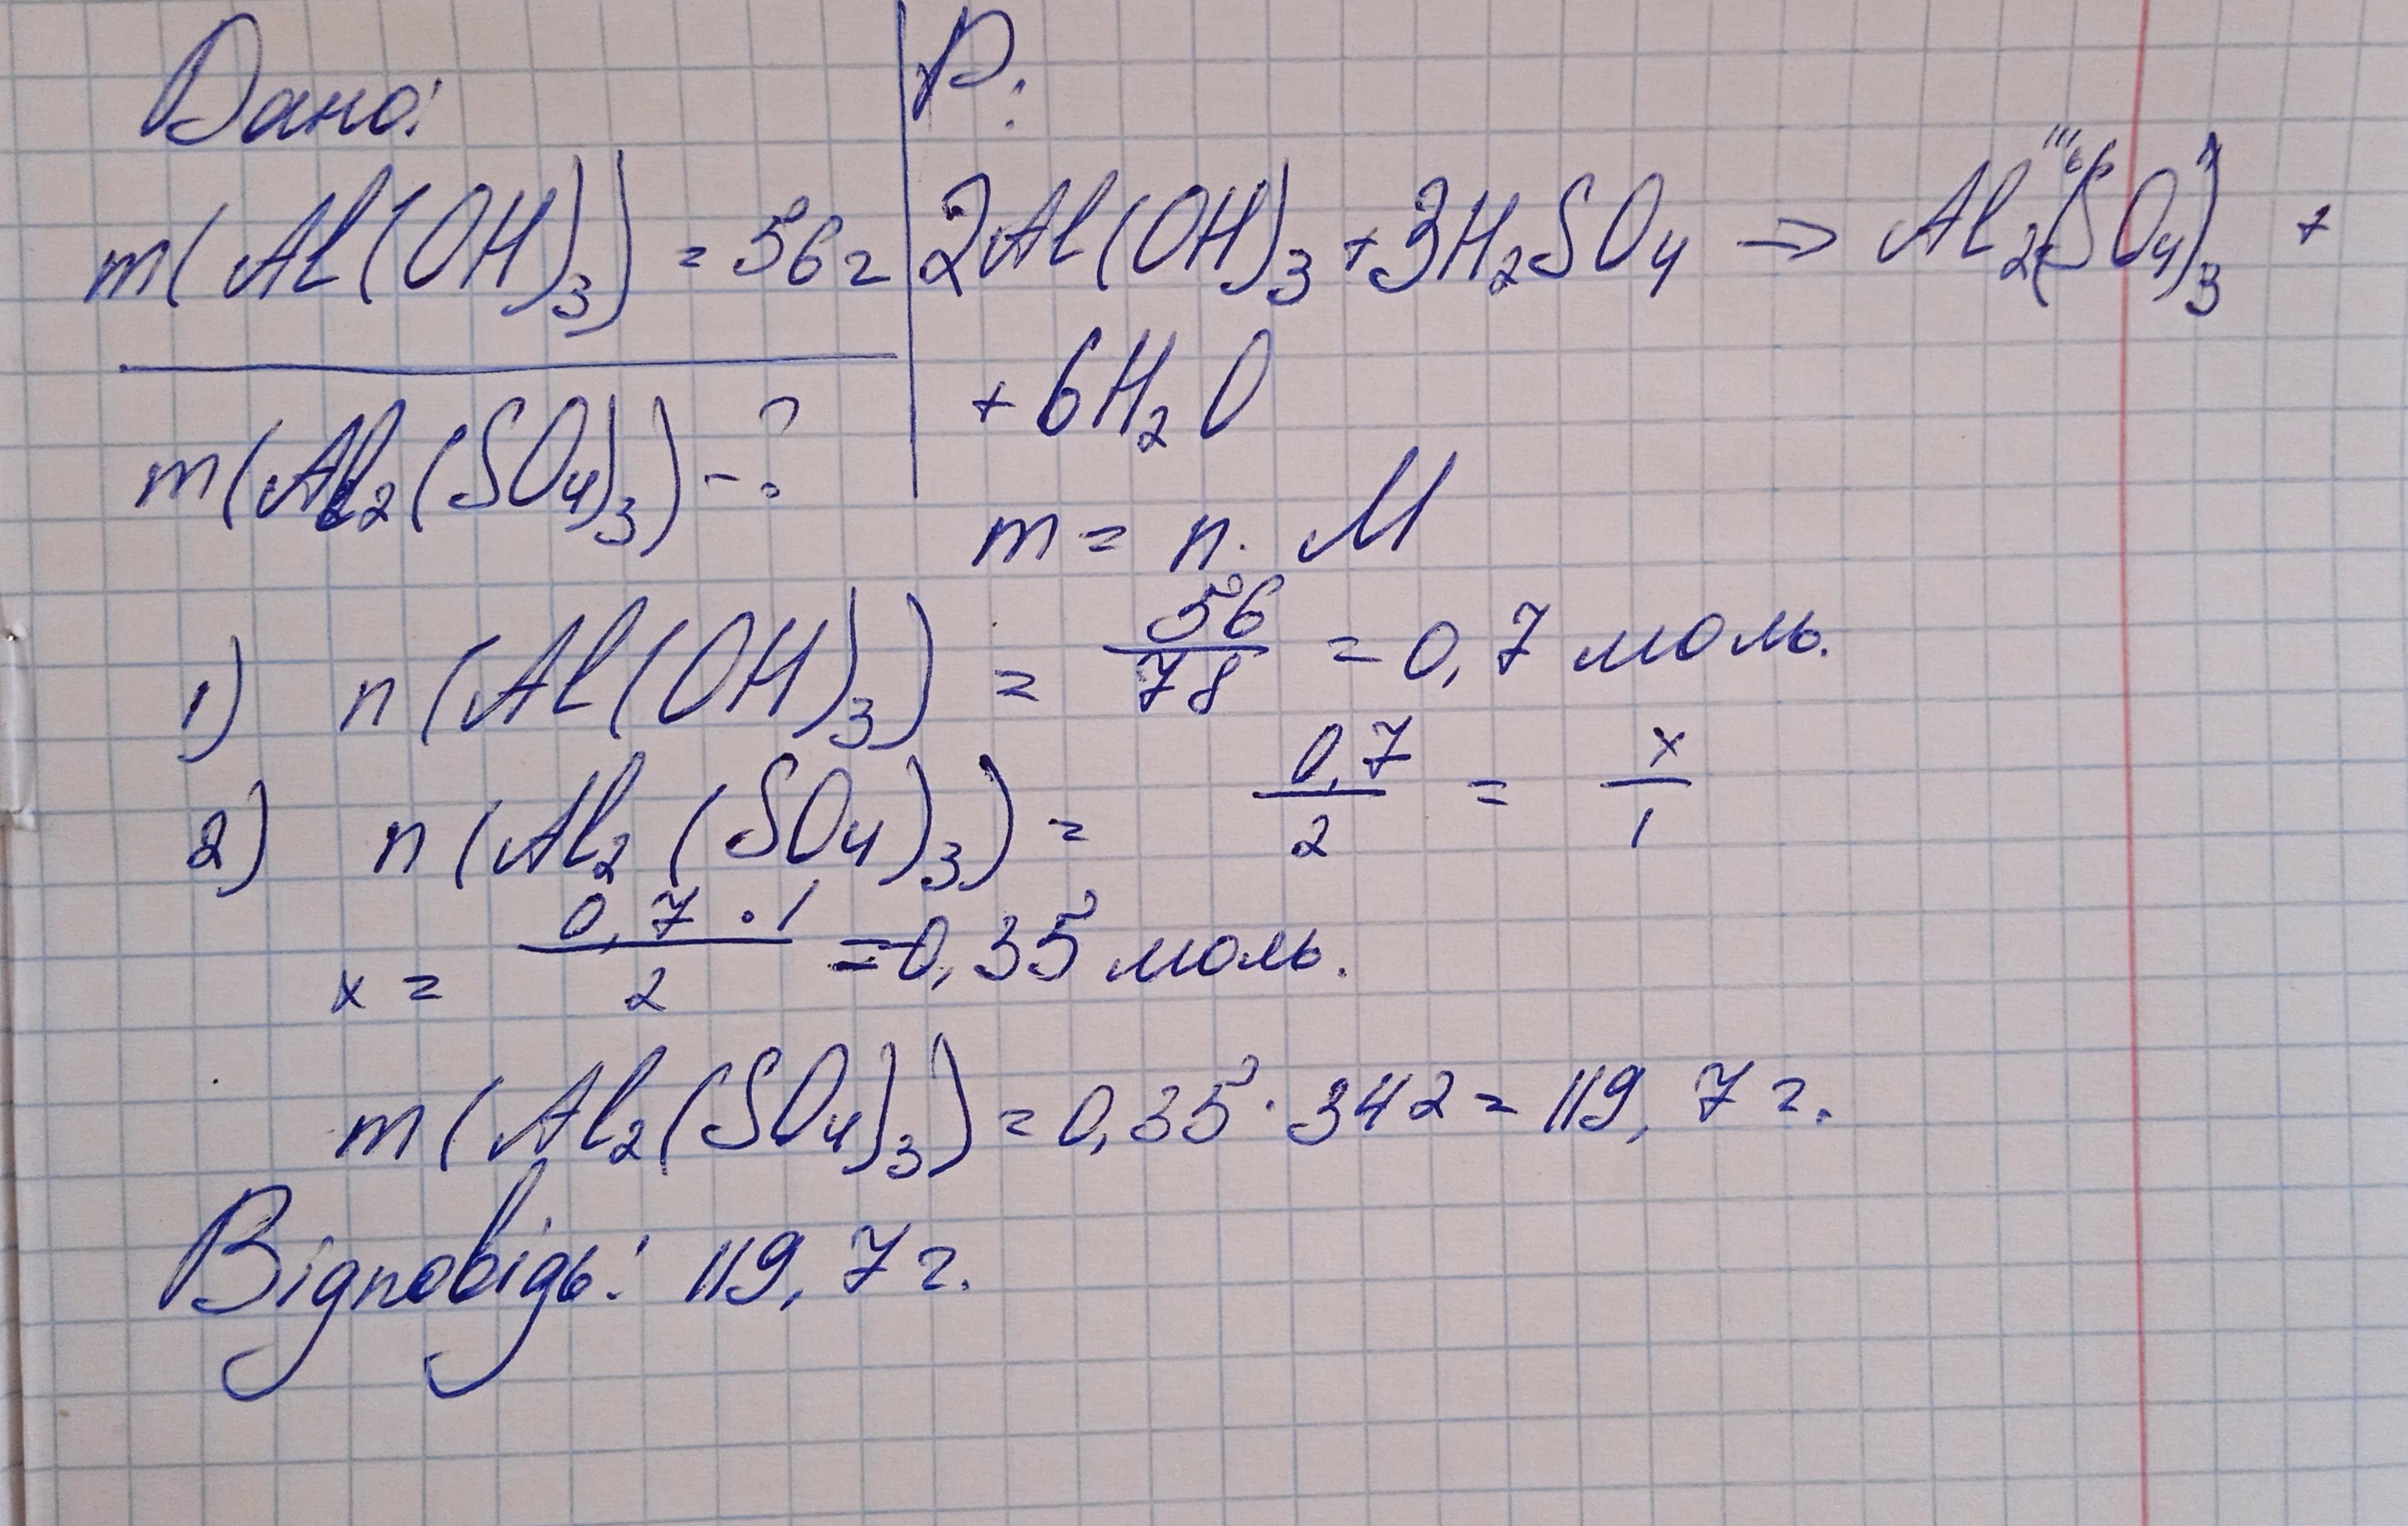 Дано:
m(Al(OH)₃) = 56г
m(Al₂(SO₄)₃) - ?
Р.
2Al(OH)₃ + 3H₂SO₄ ⇒ Al₂(SO₄)₃ +
+ 6H₂O
m = n · M
1) n(Al(OH)₃) = 56/78 = 0,7 моль.
2) n(Al₂(SO₄)₃) = 0,7/2 = x/1
x = 0,7 · 1/2 = 0,35 моль.
m(Al₂(SO₄)₃) = 0,35 · 342 = 119,7 г.
Відповідь: 119,7 г.